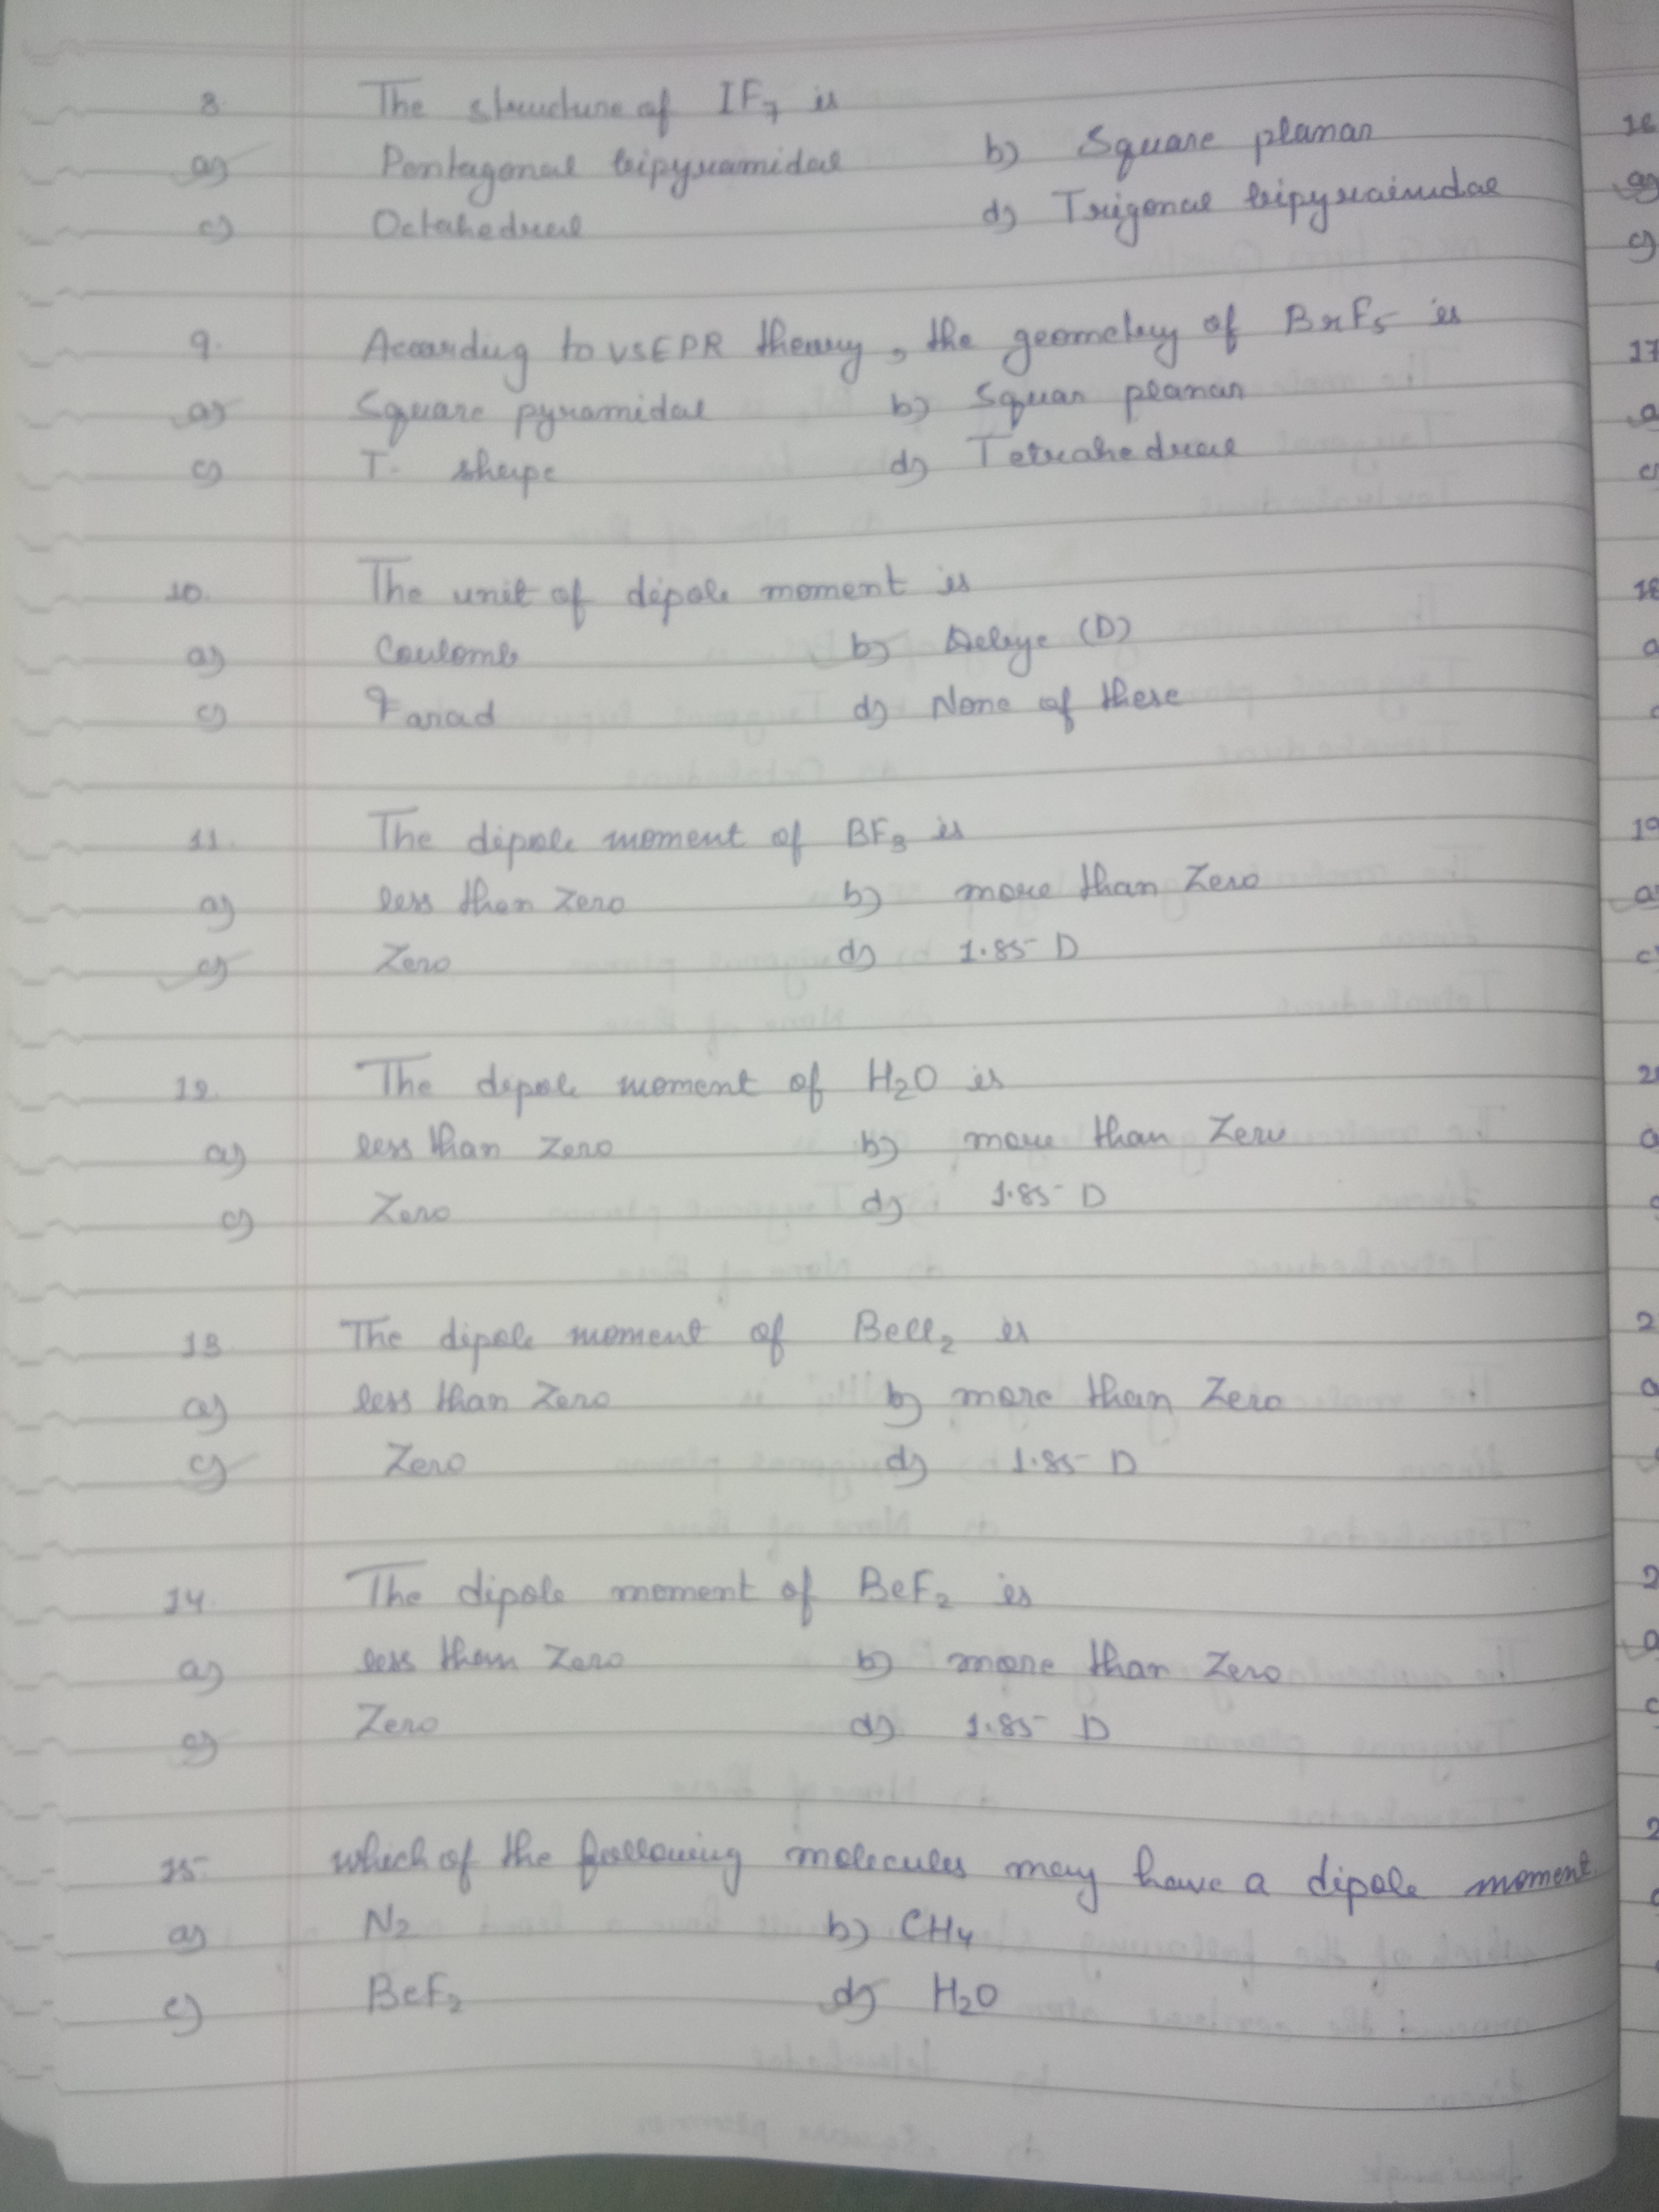 8. The structure of IF7 is
a) Pentagonal bipyramidal b) Square planar
c) Octahedral d) Trigonal bipyraimdal
9. According to VSEPR theory, the geometry of BrF5 is
a) Square pyramidal b) Squar planar
c) T. shape d) Tetrahedral
10. The unit of dipole moment is
a) Coulomb b) Debye (D)
c) Farad d) None of these
11. The dipole moment of BF3 is
a) less than Zero b) more than Zero
c) Zero d) 1.85 D
12. The dipole moment of H2O is
a) less than Zero b) more than Zero
c) Zero d) 1.85 D
13 The dipole moment of BeCl2 is
a) less than Zero b) more than Zero
c) Zero d) 1.85 D
14. The dipole moment of BeF2 is
a) less than Zero b) more than Zero
c) Zero d) 1.85 D
15. which of the following molecules may have a dipole moment
a) N2 b) CH4
c) BeF2 d) H2O
16
a)
c)
17
18
19